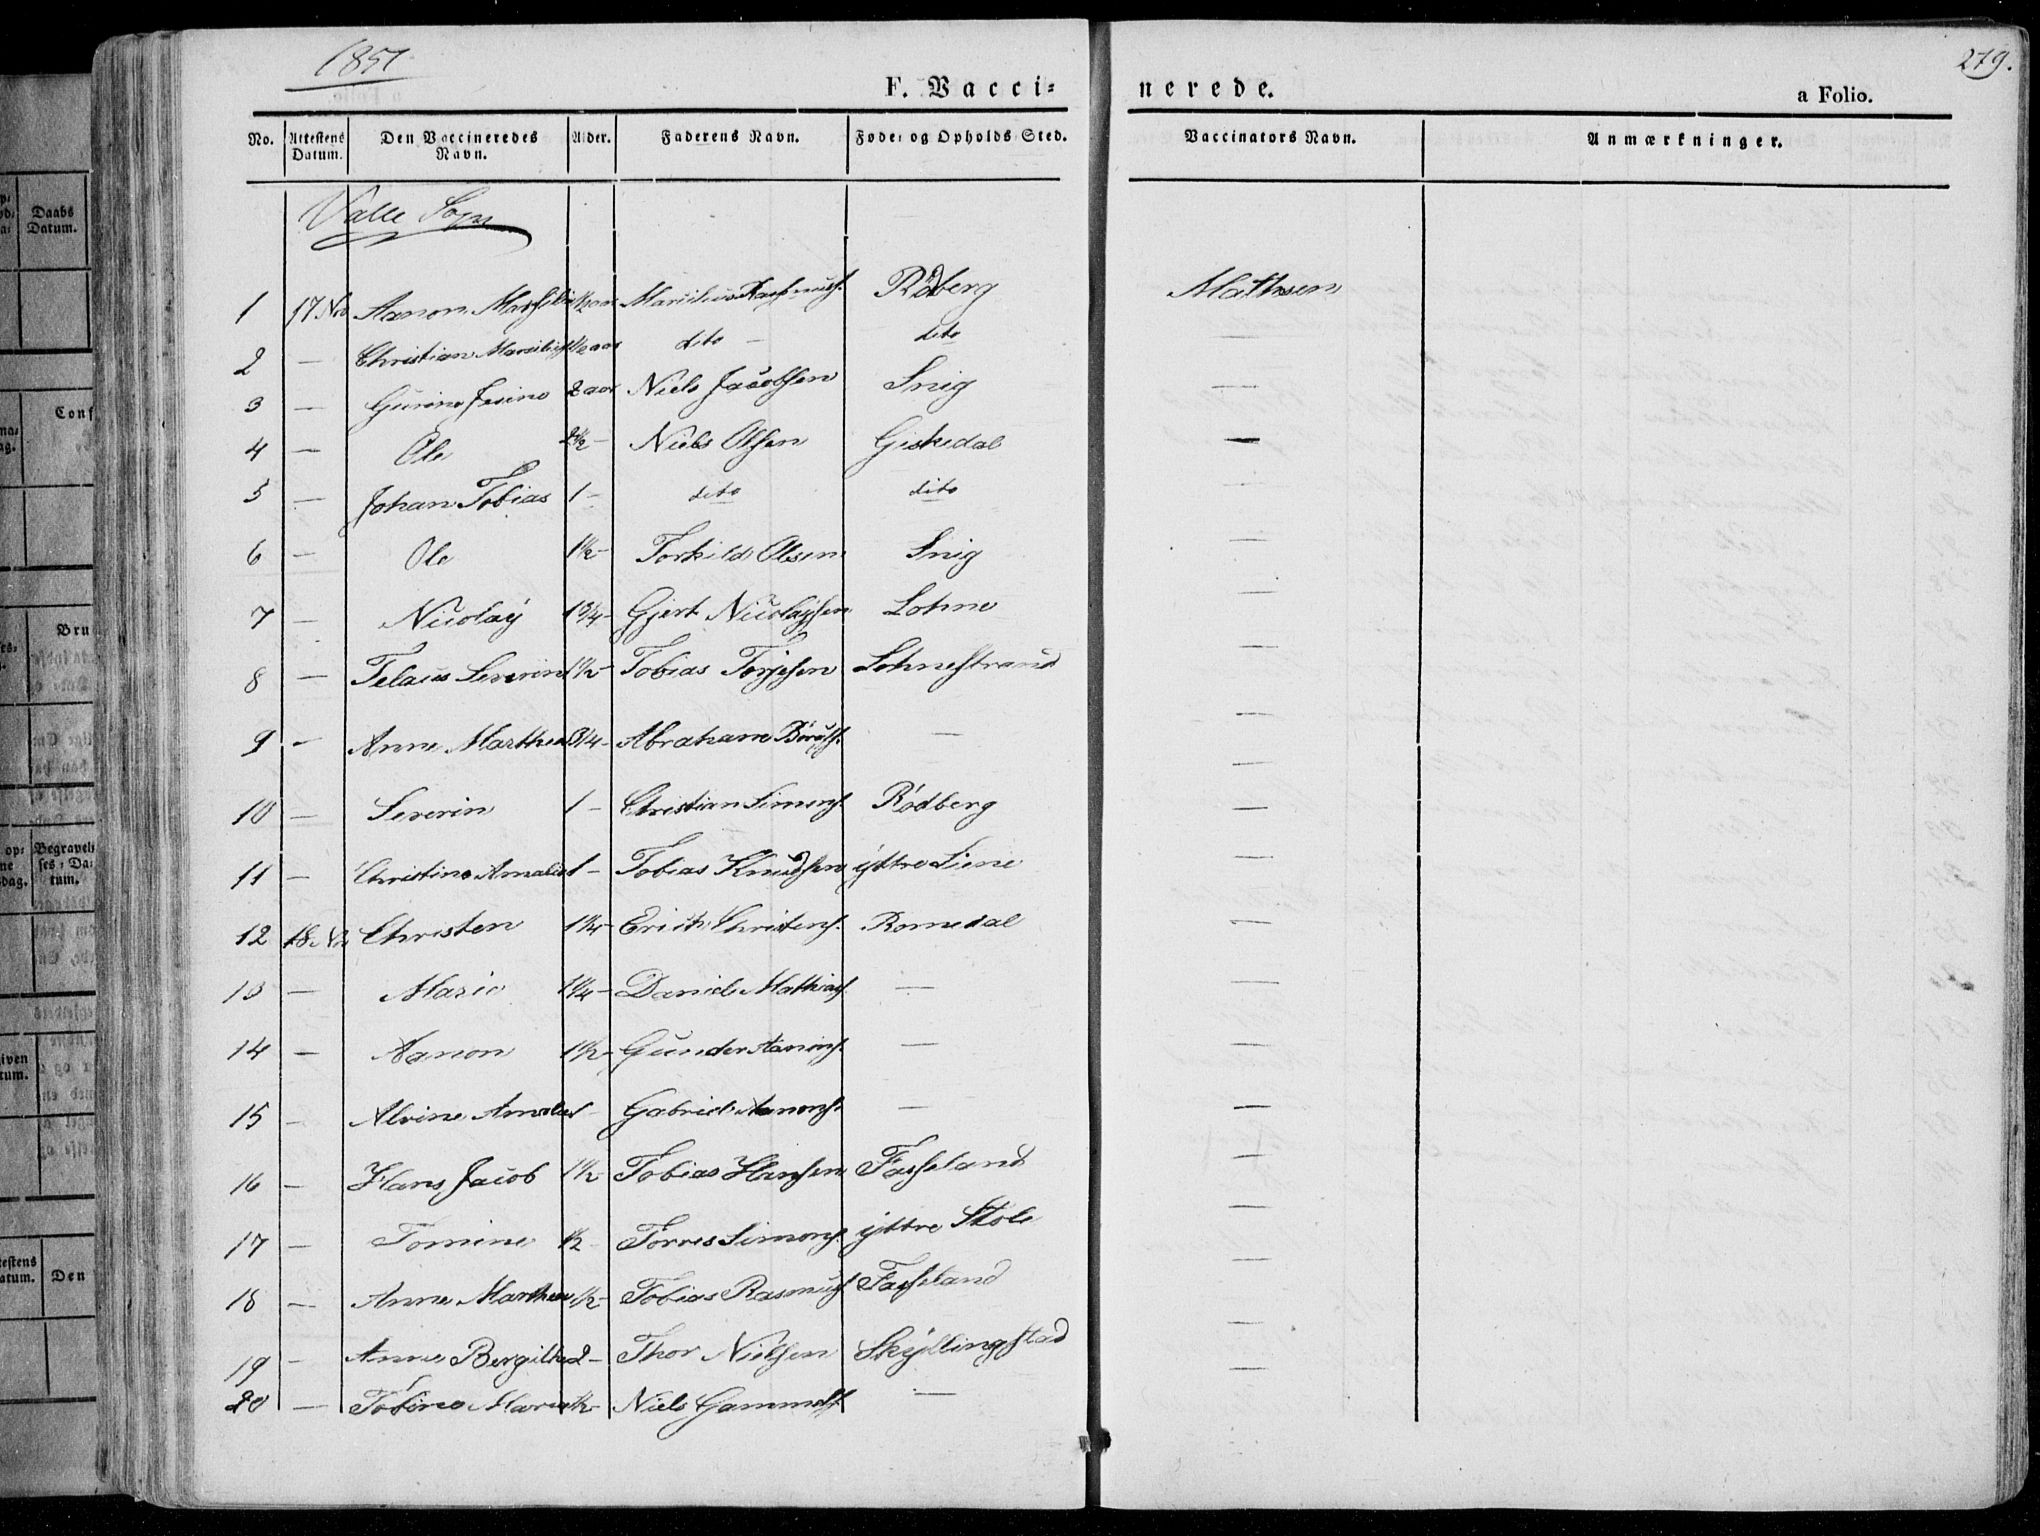 1851
279.
F. Vacci= nerede.
a Folio.
No. Attestens Datum. Den Vaccineredes Navn. Alder. Faderens Navn. Føde= og Opholds Sted. Vaccinators Navn. Anmærkninger.
Valle Sogn
1 17 Nov Aanon 1/2 aar Rødberg Mathsen
2 — Christian 1/2 aar dito — dito —
3 — Gurine Jesine 2 aar Niels Jacobsen Snig —
4 — Ole 2 1/2 — Niels Olsen Giskedal —
5 — Johan Tobias 1 — dito dito
6 — Ole 1 1/2 — Torkild Olsen Snig —
7 — Nicolaÿ 1 3/4 — Gjert Nicolaÿsen Lohne —
8 — Severin 1 1/2 — Tobias Torjesen Lohnestrand —
9 — Anne Marthea 3/4 — Abraham — —
10 — Severin 1 — Christian Simons. Rødberg —
11 — Christine Amalie 1 — Tobias Knudsen ÿttre Liene —
12 18 Nov Christen 1 1/4 — Erich Christens. Romedal —
13 — Marie 1 1/4 — Daniel Mathias. — —
14 — Aanon 1 1/2 — Gunder Aanons. — —
15 — Alvine Amalie 1 — Gabriel Aanons. — —
16 — Hans Jacob 1 1/2 Tobias Hansen Fasseland —
17 — Tomine 1/2 — Torres Simons. ÿttre Støle —
18 — Anne Marthea 1/2 — Tobias Rasmus. Fasseland —
19 — Anne Bergithe 2 — Thor Nielsen Skÿllingstad —
20 — Tobine Marie 1/2 — Niels Gammels. —